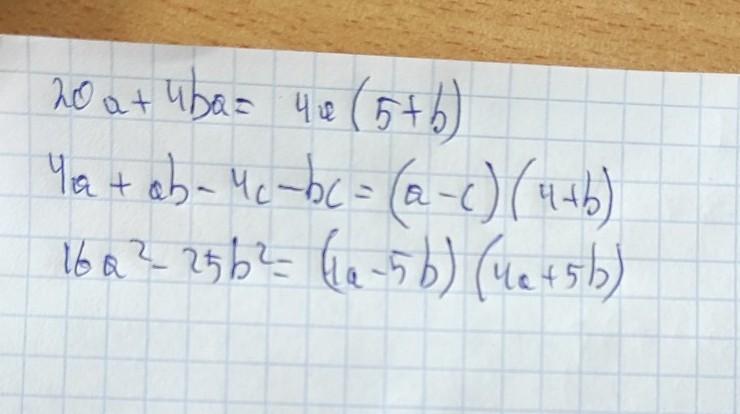 20a + 4ba = 4a (5+b)
4a + ab - 4c - bc = (a - c) (4+b)
16a² - 25b² = (4a - 5b) (4a + 5b)